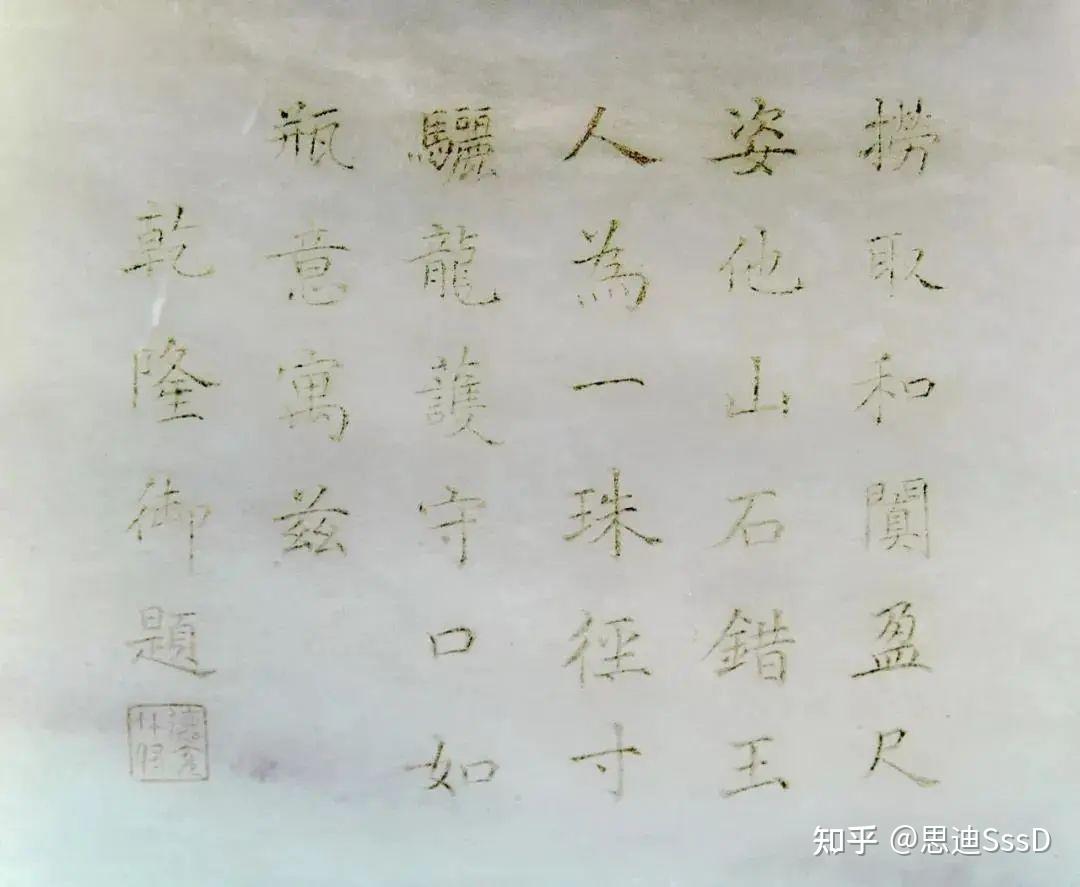 撈取和闐盈尺
姿他山石錯玉
人為一珠徑寸
驪龍護守口如
瓶意寓茲
乾隆御題
知乎 @思迪SssD